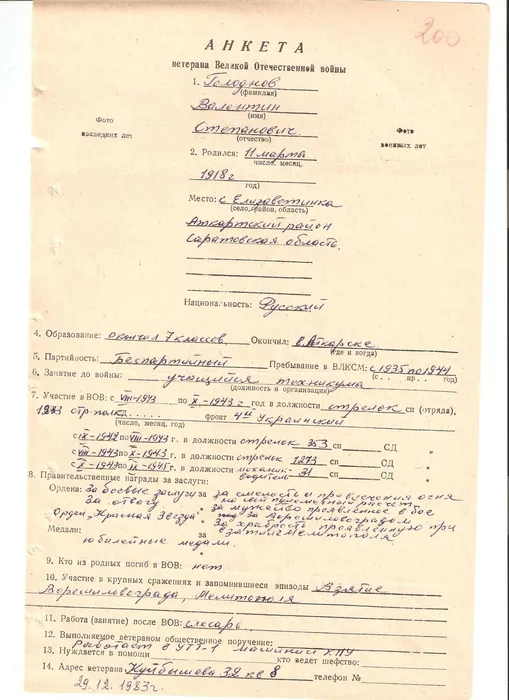 200
АНКЕТА
ветерана Великой Отечественной войны
1. Голоднов
(фамилия)
Валентин
(имя)
Степанович
(отчество)
Фото
последних лет
Фото
военных лет
2. Родился: 11 марта
число, месяц,
1918г
год)
Место: с Елизаветинка
(село, район, область)
Аткартский район
Саратовская область.
Национальность: Русский
4. Образование: окончил 7 классов Окончил: в Аткарске
(где и когда)
5. Партийность: Беспартийный Пребывание в ВЛКСМ: с 1935 по 1944
(с . . пр . . год)
6. Занятие до войны: учащийся техникума
(должность и организация)
7. Участие в ВОВ: с VIII-1943 по X-1943 г год в должности стрелок сп (отряда),
1273 стр. полк фронт 4ый Украинский
(число, месяц, год)
с IX-1942 по VIII-1943 г. в должности стрелок 353 сп СД "
с VIII-1943 по X-1943 г. в должности стрелок 1273 сп СД "
с X-1943 по IX-1945 г. в должности механик-водитель 31 сп СД "
8. Правительственные награды за заслуги:
Ордена: За боевые заслуги за смелость и привлечения огня
на свой пулеметный расчет
За отвагу за мужество проявленное в бое
под за Ворошиловградом
Орден „Красная Звезда" За храбрость проявленную при
Медали: взятие Мелитополя.
юбилейные медали.
9. Кто из родных погиб в ВОВ: нет
10. Участие в крупных сражениях и запомнившиеся эпизоды Взятие
Ворошиловграда, Мелитополя
11. Работа (занятие) после ВОВ: слесарь
12. Выполняемое ветераном общественное поручение:
Работает в УТТ-1 машинист КПУ
13. Нуждается в помощи кто ведет шефство:
14. Адрес ветерана Куйбышева 32 кв 8 телефон №
29.12.1983г.